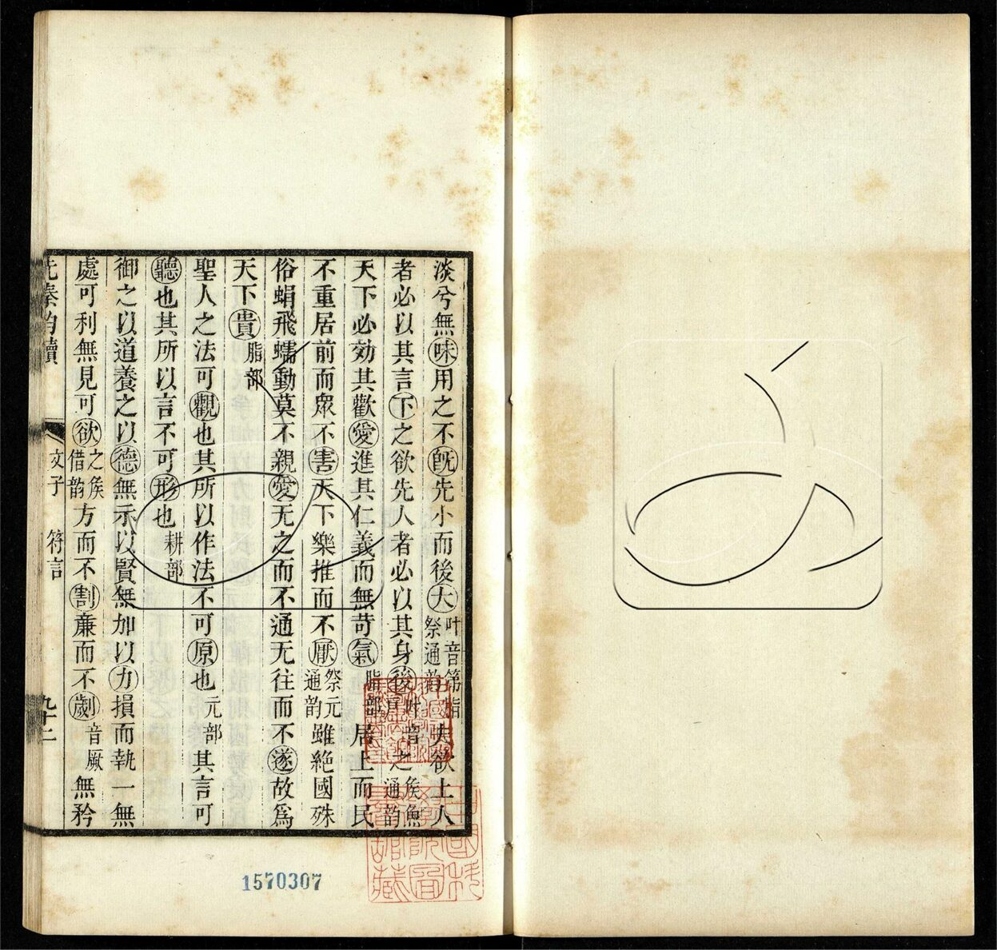 淡兮無味用之不旣先小而後大叶音第脂祭通韵夫欲上人
者必以其言下之欲先人者必以其身後之矦魚通韵
天下必効其歡愛進其仁義而無苛氣脂部居上而民
不重居前而衆不害天下樂推而不厭祭元通韵雖絶國殊
俗蜎飛蠕動莫不親愛无之而不通无往而不遂故爲
天下貴脂部
聖人之法可觀也其所以作法不可原也元部其言可
聽也其所以言不可形也耕部
御之以道養之以德無示以賢無加以力損而執一無
處可利無見可欲之矦借韵方而不割廉而不劌音厥無矜
先秦韵讀
文子 符言
九十二
1570307